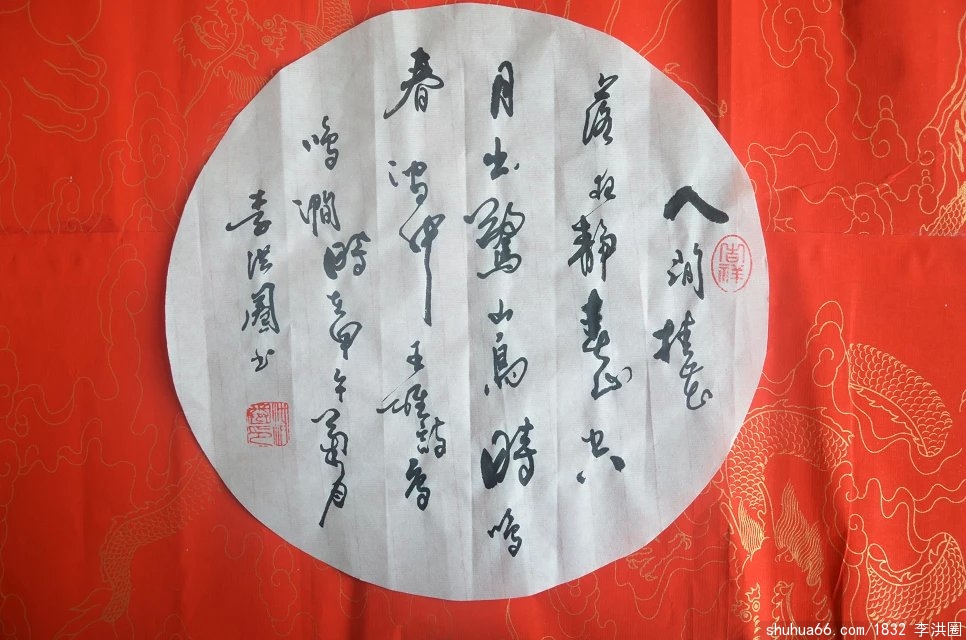 人閒桂花
落夜静春山空
月出驚山鳥時鳴
春澗中王維詩鳥
鳴澗時在甲午菊月
李洪圈书
吉祥
shuhua66.com/1832 李洪圈